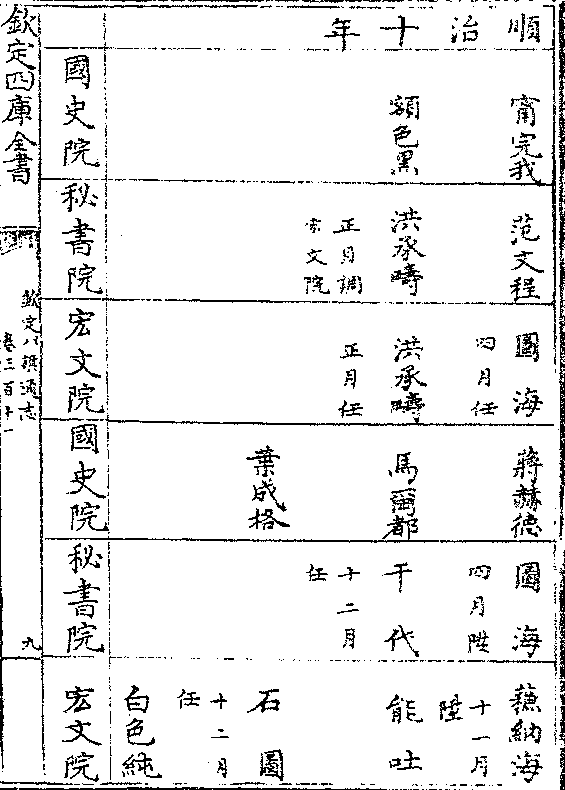 順治十年
甯完我
額色黑
國史院
范文程
洪承疇
正月調
宏文院
秘書院
圖海
四月任
洪承疇
正月任
宏文院
蔣赫德
馬爾都
葉成格
國史院
圖海
四月陞
干代
十二月
任
秘書院
蘇納海
十一月
陞
能吐
石圖
十二月
任
白色純
宏文院
欽定四庫全書
欽定八旗通志
卷三百十一
九